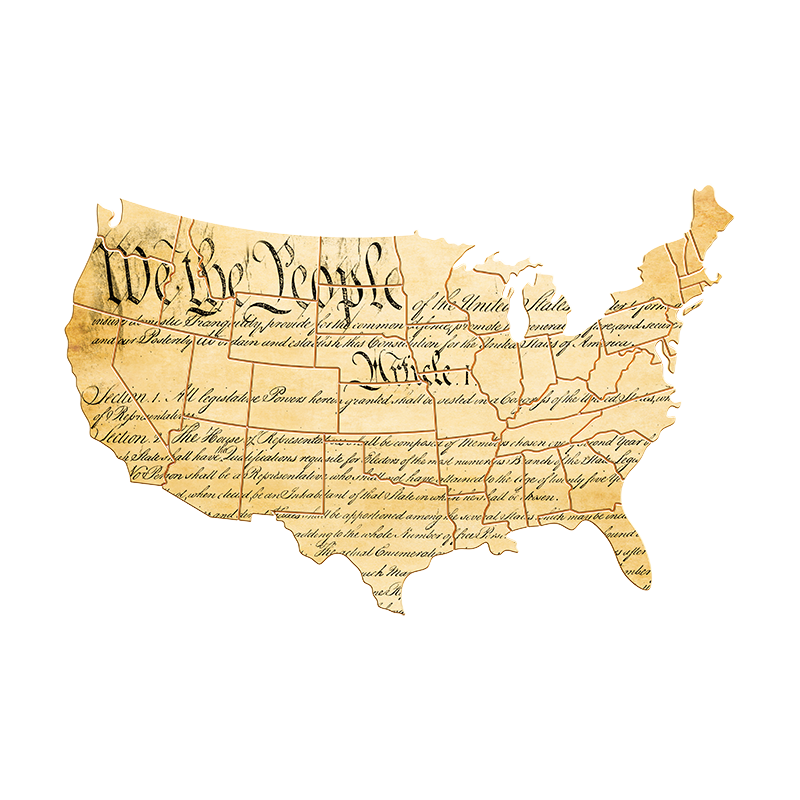 We the People
of the United States, form
insure domestic Tranquility, provide for the common defence, promote general fare, and secure
and our Posterity, do ordain and establish this Constitution for the United States of America.
Article. I.
Section. 1. All legislative Powers herein granted shall be vested in a Congress of the United States, wh
of Representatives.
Section. 2. The House of Representatives shall be composed of Members chosen every second Year b
State shall have Qualifications requisite for Electors of the most numerous Branch of the State Legis
No Person shall be a Representative who shall not have attained to the Age of twenty five Ye
d, when elected, be an Inhabitant of that State in which he shall be chosen.
and direct Taxes shall be apportioned among the several States which may be inclu
adding to the whole Number of free Pers
bound
The actual Enumerat
s after
such Man
mber